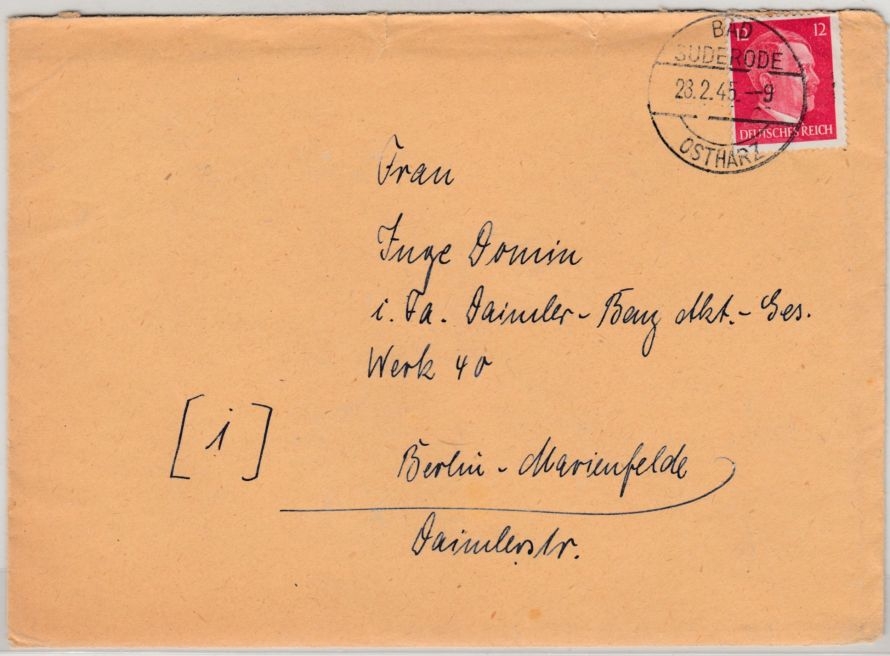 BAD
SUDERODE
28.2.45.-9
OSTHARZ
12 12
DEUTSCHES REICH
Frau
Inge Domin
i. Fa. Daimler-Benz Akt.-Ges.
Werk 40
[i]
Berlin-Marienfelde
Daimlerstr.